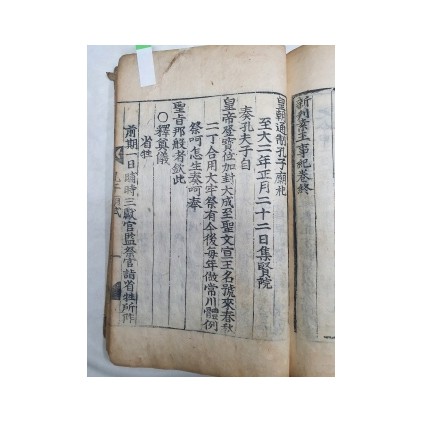 新刊素王事紀卷終
皇朝通制孔子廟祀
至大二年正月二十二日集賢院
奏孔夫子自
皇帝登寶位加封大成至聖文宣王名號來春秋
二丁合用大牢祭有今後每年做常川體例
祭呵怎生奏呵奉
聖旨那般者欽此
○釋奠儀
省牲
前期一日晡時三獻官監祭官詣省牲所阼